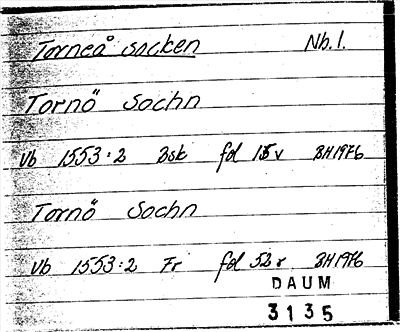 Torneå socken Nb. 1.
Tornö Sochn
Vb 1553:2 Bsk fol v BH1976
Tornö Sochn
Vb 1553:2 Fr fol 52 r BH1976
DAUM
3135